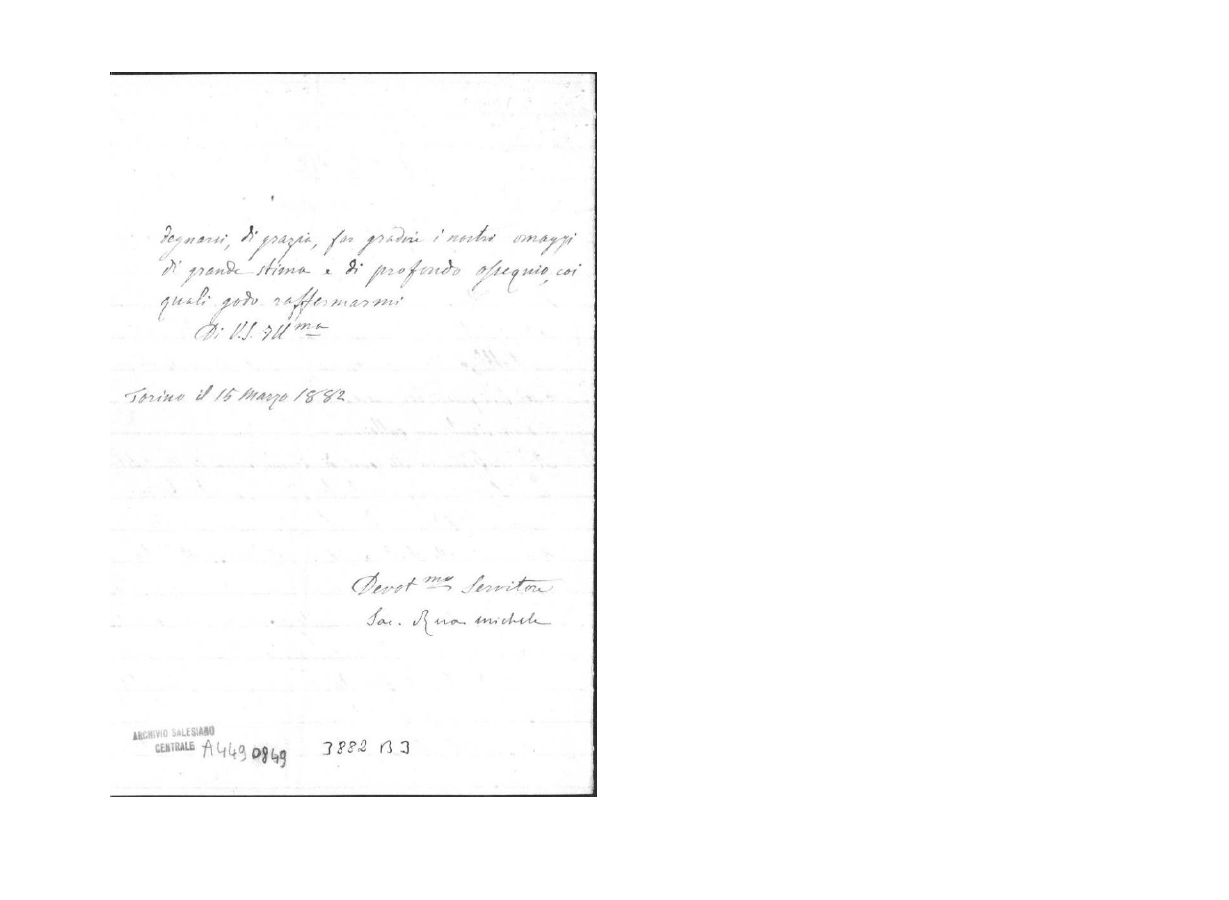 degnarsi, di grazia, far gradire i nostri omaggi
di grande stima e di profondo ossequio, coi
quali godo raffermarmi
Di V.S. Ill^ma
Torino il 15 Marzo 1882
Devot^mo Servitore
Sac. Rua Michele
ARCHIVIO SALESIANO
CENTRALE A449 0849 3882 B3